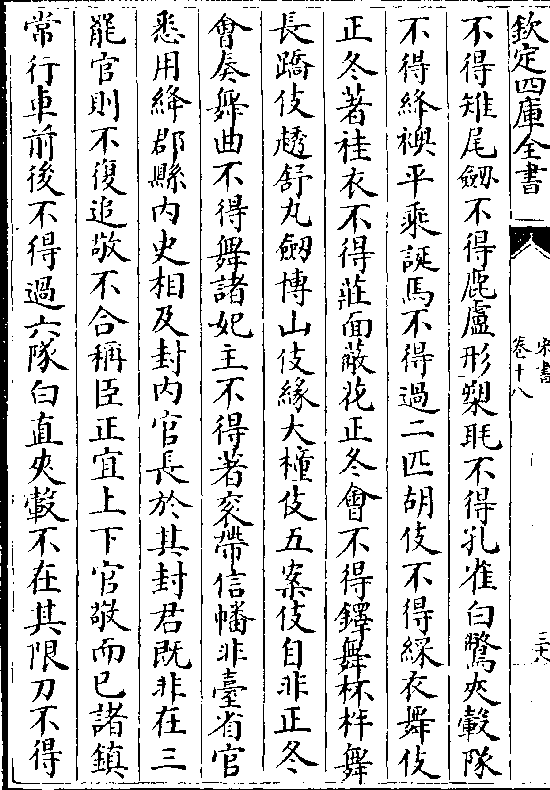 欽定四庫全書
宋書
卷十八
三十八
不得雉尾劒不得鹿盧形槊毦不得孔雀白鷩夾轂隊
不得絳襖平乘誕馬不得過二匹胡伎不得綵衣舞伎
正冬著袿衣不得莊面蔽花正冬會不得鐸舞杯柈舞
長蹻伎趫舒丸劒博山伎緣大橦伎五案伎自非正冬
會奏舞曲不得舞諸妃主不得著衮帶信幡非臺省官
悉用絳郡縣内史相及封内官長於其封君既非在三
罷官則不復追敬不合稱臣正宜上下官敬而已諸鎮
常行車前後不得過六隊白直夾轂不在其限刀不得